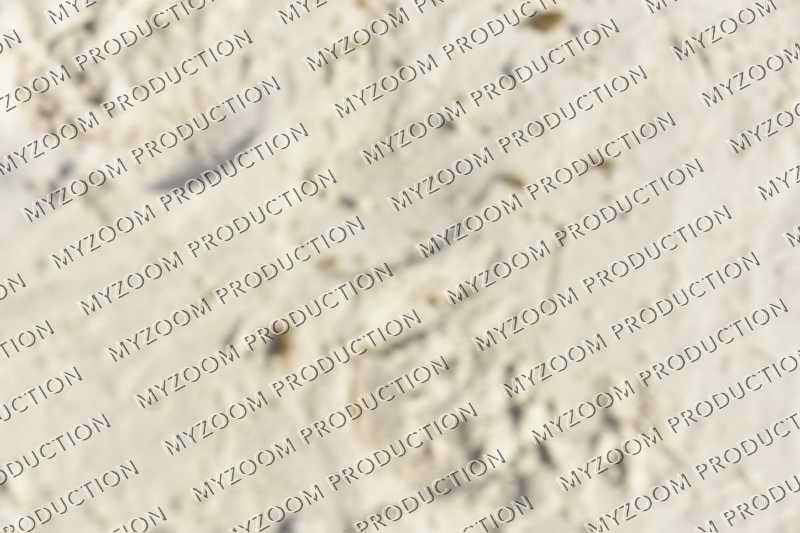 MYZOOM PRODUCTION
MYZOOM PRODUCTION
MYZOOM PRODUCTION
MYZOOM PRODUCTION
MYZOOM PRODUCTION
MYZOOM PRODUCTION
MYZOOM PRODUCTION
MYZOOM PRODUCTION
MYZOOM PRODUCTION
MYZOOM PRODUCTION
MYZOOM PRODUCTION
MYZOOM PRODUCTION
MYZOOM PRODUCTION
MYZOOM PRODUCTION
MYZOOM PRODUCTION
MYZOOM PRODUCTION
MYZOOM PRODUCTION
MYZOOM PRODUCTION
MYZOOM PRODUCTION
MYZOOM PRODUCTION